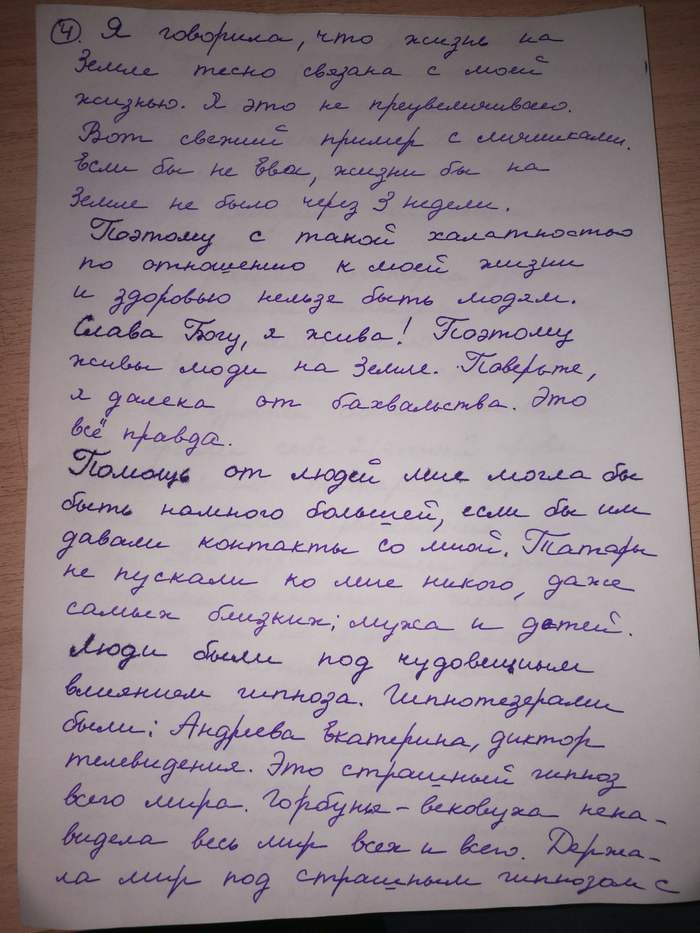 4. Я говорила, что жизнь на
Земле тесно связана с моей
жизнью. Я это не преувеличиваю.
Вот свежий пример с личинками.
Если бы не Ева, жизни бы на
Земле не было через 3 недели.
Поэтому с такой халатностью
по отношению к моей жизни
и здоровью нельзе быть людям.
Слава Богу, я жива! Поэтому
живы люди на Земле. Поверьте,
я далека от бахвальства. Это
всё правда.
Помощь от людей мне могла бы
быть намного большей, если бы им
давали контакты со мной. Татары
не пускали ко мне никого, даже
самых близких: мужа и детей.
Люди были под чудовещным
влиянием гипноза. Гипнотезерами
были: Андреева Екатерина, диктор
телевидения. Это страшный гипноз
всего мира. Горбунья - вековуха нена-
видела весь мир всех и всего. Держа-
ла мир под страшным гипнозом с